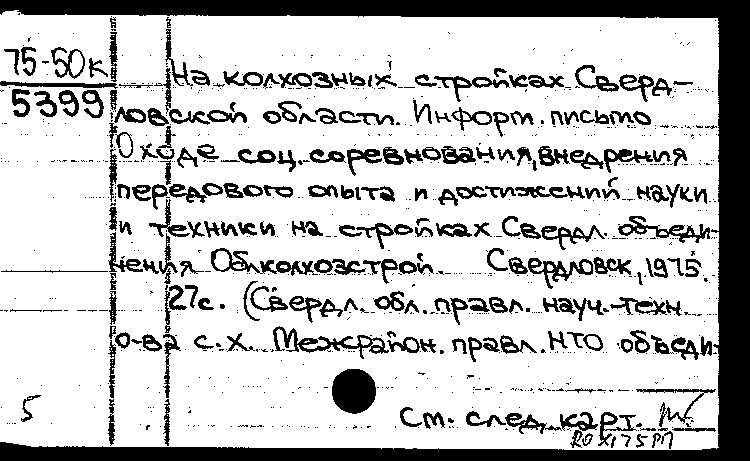 75-50к
5399
На колхозных стройках Сверд-
ловской области. Информ. письмо
О ходе соц. соревнования, внедрения
передового опыта и достижений науки
и техники на стройках Свердл. объеди-
нения Облколхозстрой. Свердловск, 1975.
27с. (Свердл. обл. правл. науч.-техн
о-ва с.х. Межрайон. правл. НТО объеди-
5
См. след. карт.